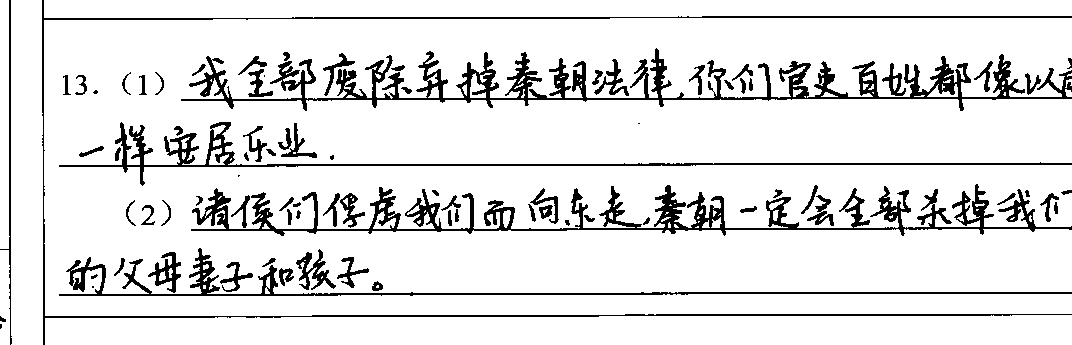 13.（1）我全部废除弃掉秦朝法律,你们官吏百姓都像以
一样安居乐业.
（2）诸侯们俘虏我们而向东走,秦朝一定会全部杀掉我们
的父母妻子和孩子。